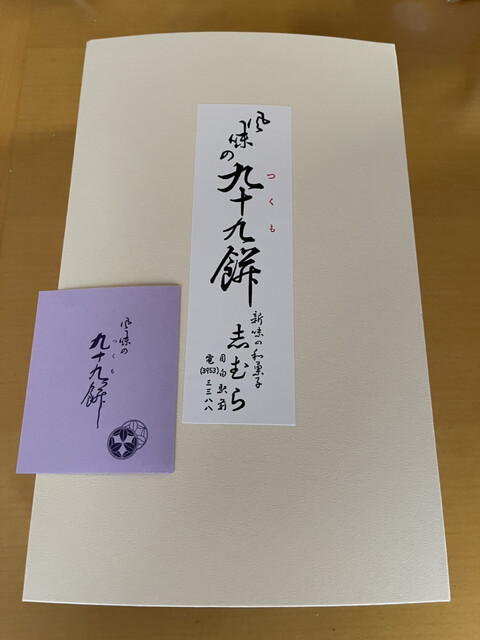 風味の
九十九餅
つくも
新味の和菓子
志むら
目白駅前
電(3953)三三八八
風味の
九十九餅
つくも